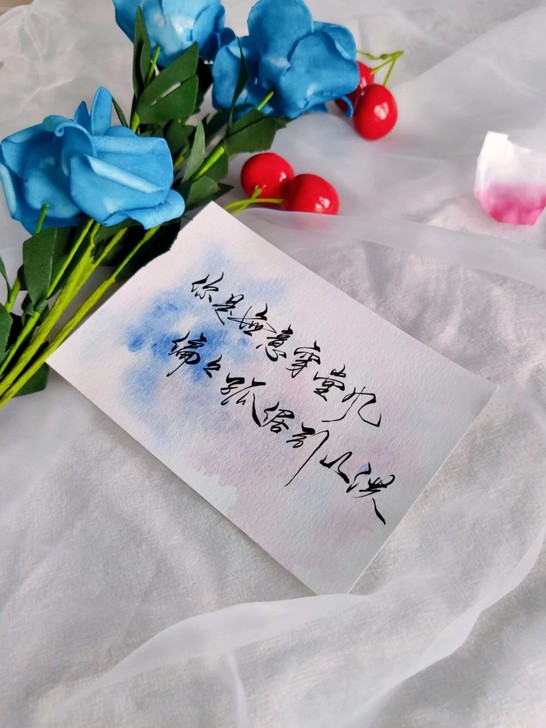 你是無意穿堂风
偏偏孤倨引山洪